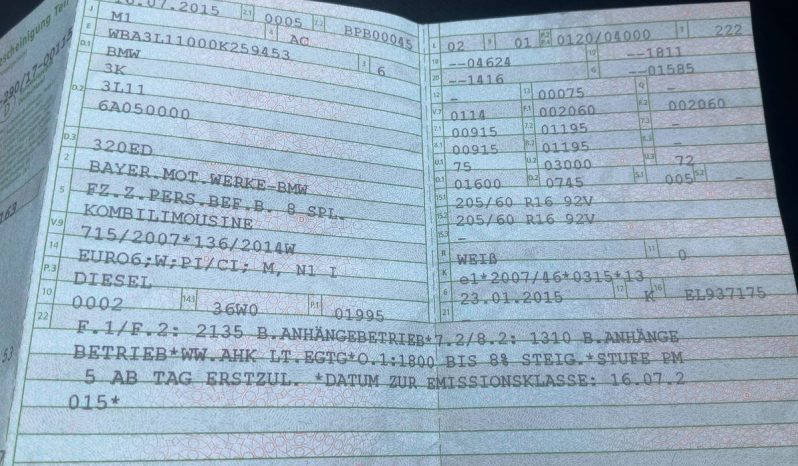 escheinigung Teil
16.07.2015 2.1 0005 2.2 BPB00045
J M1 4 AC
E WBA3L11000K259453 3 6
D.1 BMW
3K
D.2 3L11
6A050000
D.3 320ED
2 BAYER.MOT.WERKE-BMW
5 FZ.Z.PERS.BEF.B. 8 SPL.
KOMBILIMOUSINE
V.9 715/2007*136/2014W
14 EURO6;W;PI/CI; M, N1 I
P.3 DIESEL
10 0002 14.1 36W0 P.1 01995
L 02 9 01 P.2 P.4 0120/04000 T 222
18 --04624 19 --1811
20 --1416 G --01585
12 - 13 00075 Q -
V.7 0114 F.1 002060 F.2 002060
7.1 00915 7.2 01195 7.3 -
8.1 00915 8.2 01195 8.3 -
U.1 75 U.2 03000 U.3 72
O.1 01600 O.2 0745 S.1 005 S.2 -
15.1 205/60 R16 92V
15.2 205/60 R16 92V
15.3 -
R WEIß 11 0
K e1*2007/46*0315*13
6 23.01.2015 17 K 16 EL937175
21
22 F.1/F.2: 2135 B.ANHÄNGEBETRIEB*7.2/8.2: 1310 B.ANHÄNGE
BETRIEB*WW.AHK LT.EGTG*O.1:1800 BIS 8% STEIG.*STUFE PM
5 AB TAG ERSTZUL. *DATUM ZUR EMISSIONSKLASSE: 16.07.2
015*